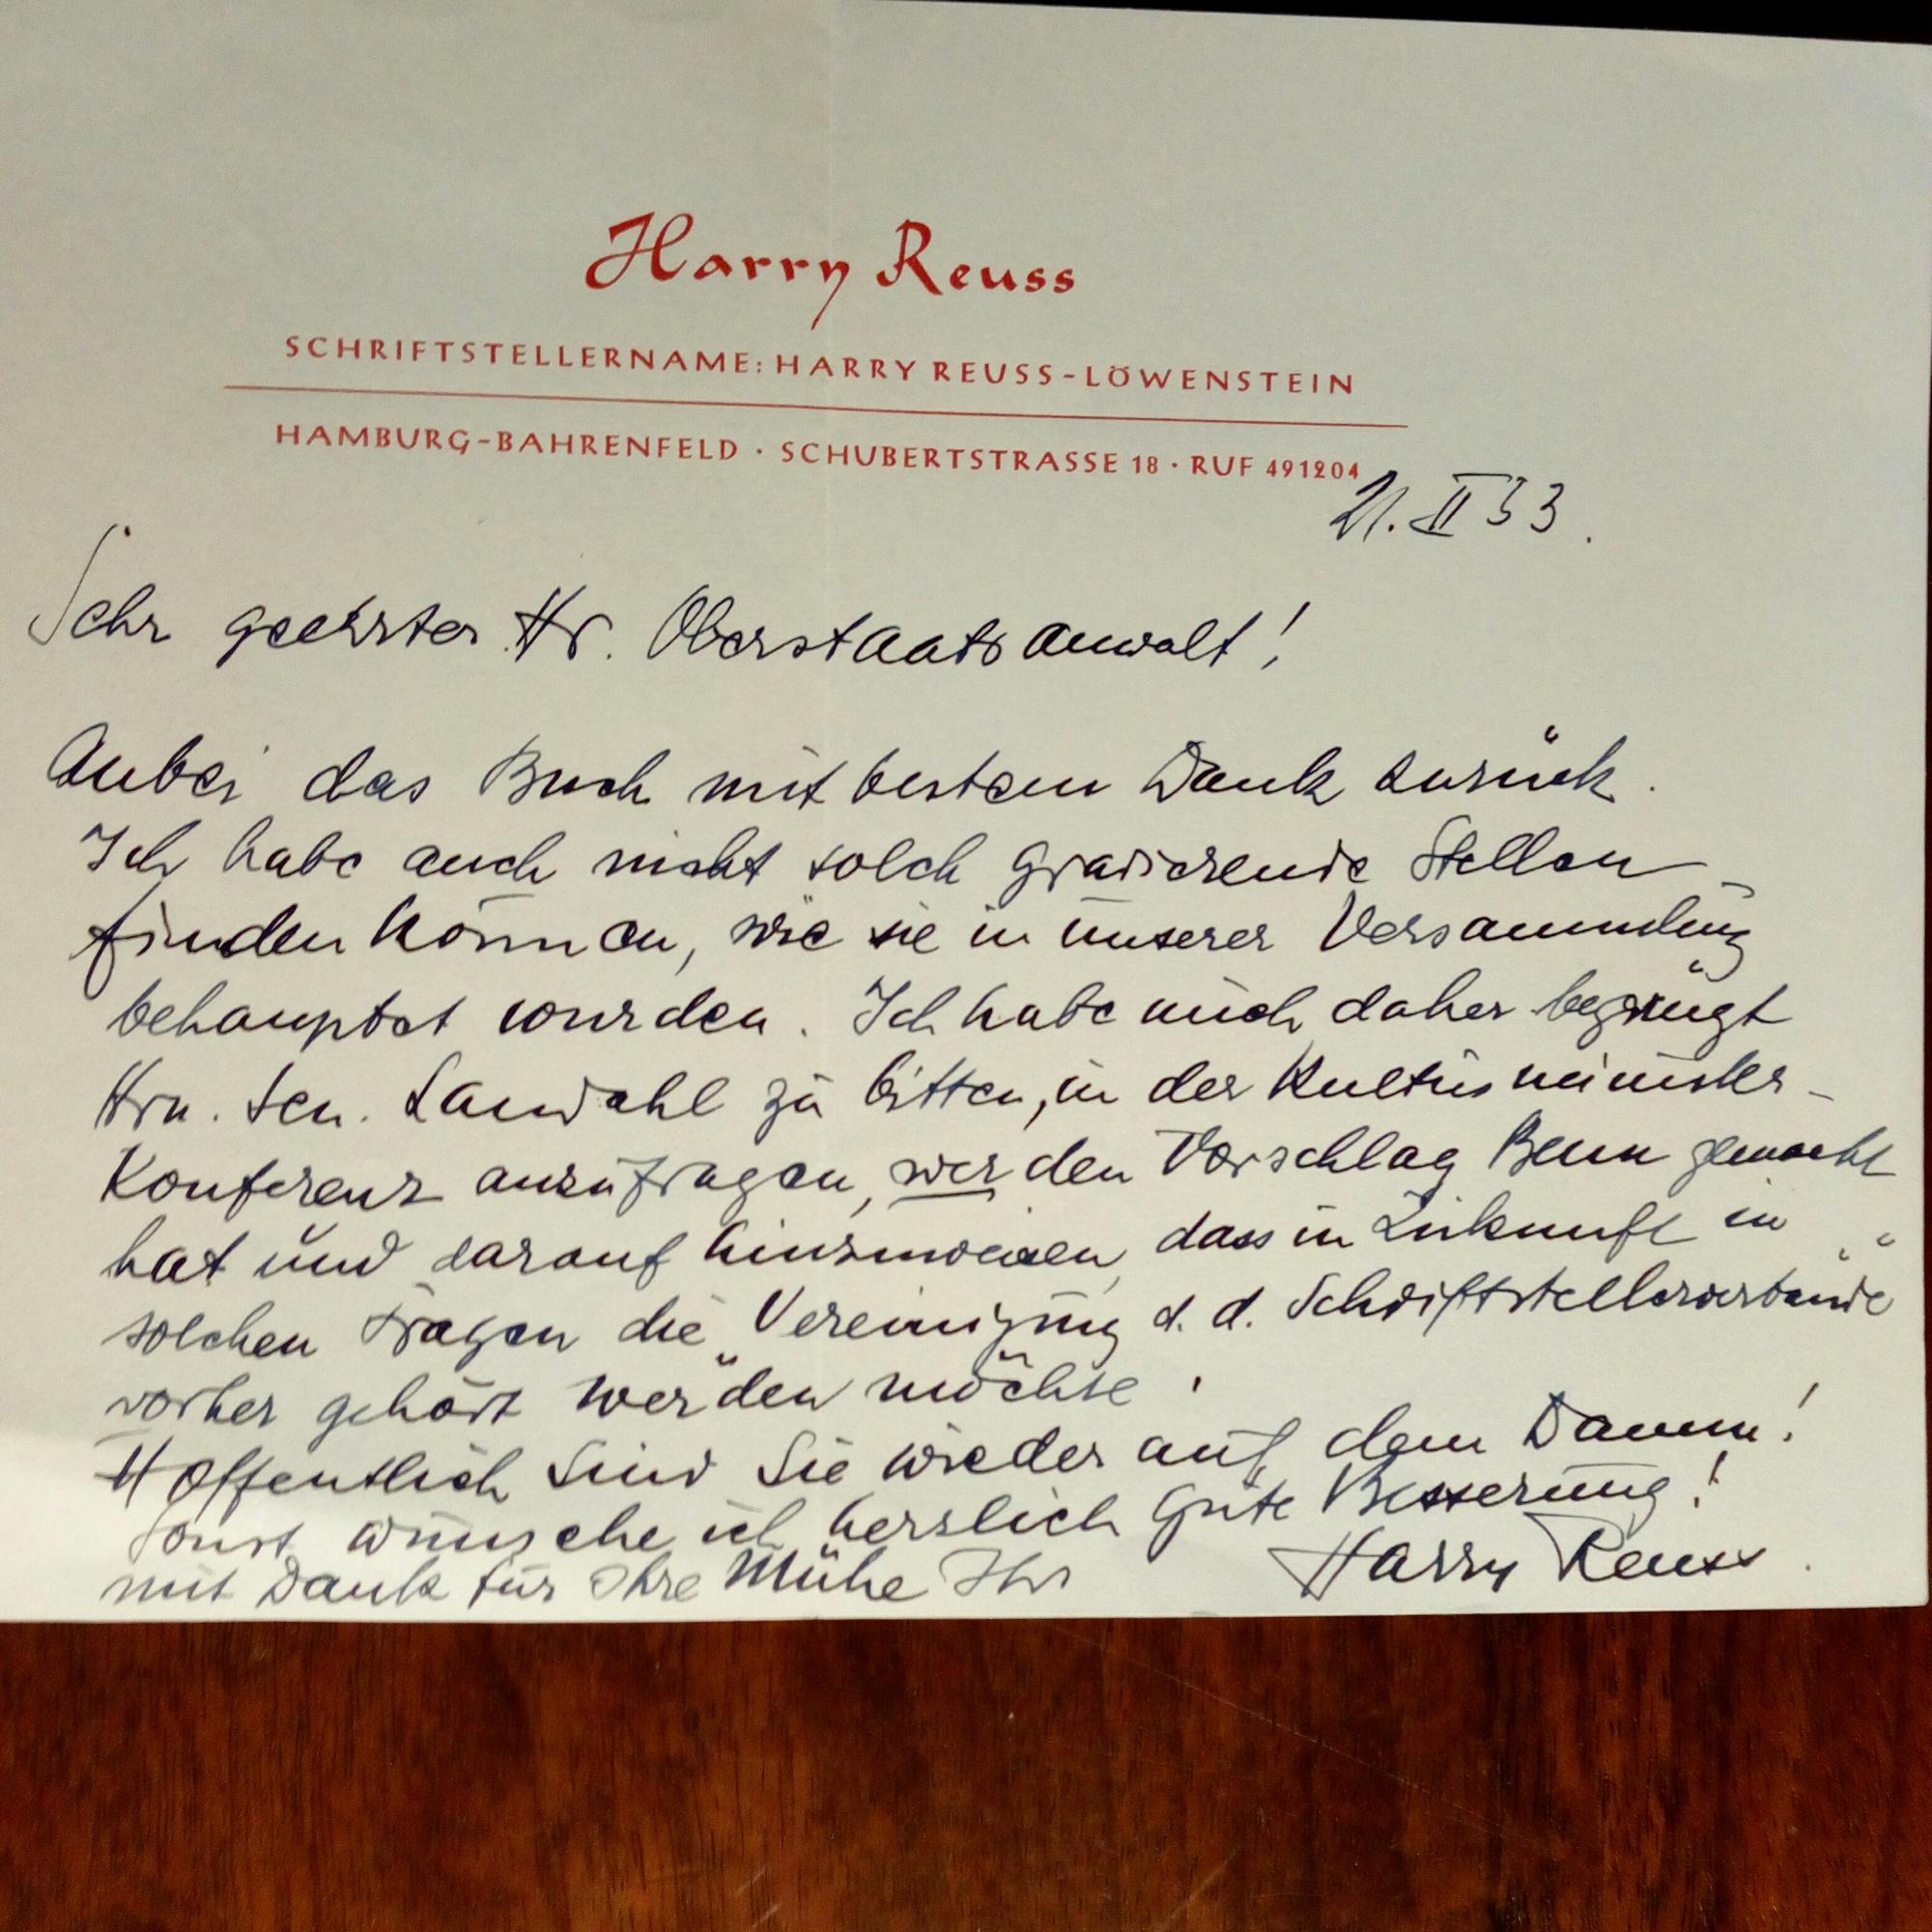 Harry Reuss
SCHRIFTSTELLERNAME: HARRY REUSS-LÖWENSTEIN
HAMBURG-BAHRENFELD · SCHUBERTSTRASSE 18 · RUF 491204
21. II 53.
Sehr geehrter Hr. Oberstaatsanwalt!
Anbei das Buch mit bestem Dank zurück.
Ich habe auch nicht solch gravierende Stellen
finden können, wie sie in unserer Versammlung
behauptet wurden. Ich habe mich daher begnügt
Hrn. Sen. Landahl zu bitten, in der Kultusminister-
Konferenz anzufragen, wer den Vorschlag Benn gemacht
hat und darauf hinzuweisen, dass in Zukunft in
solchen Fragen die Vereinigung d. d. Schriftstellerverbände
vorher gehört werden möchte.
Hoffentlich sind Sie wieder auf dem Damm!
Sonst wünsche ich herzlich gute Besserung!
mit Dank für Ihre Mühe Ihr Harry Reuss.